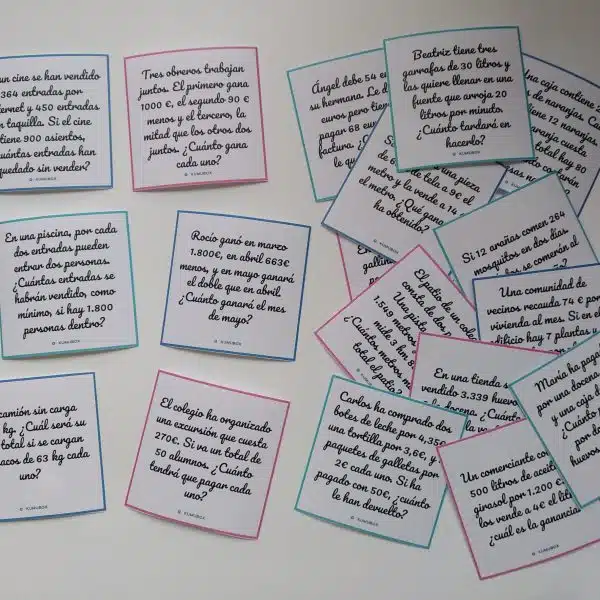 un cine se han vendido
364 entradas por
ernet y 450 entradas
taquilla. Si el cine
tiene 900 asientos,
uántas entradas han
quedado sin vender?
KUMUBOX
Tres obreros trabajan
juntos. El primero gana
1000 €, el segundo 90 €
menos y el tercero, la
mitad que los otros dos
juntos. ¿Cuánto gana
cada uno?
KUMUBOX
En una piscina, por cada
dos entradas pueden
entrar dos personas.
¿Cuántas entradas se
habrán vendido, como
mínimo, si hay 1.800
personas dentro?
KUMUBOX
Rocío ganó en marzo
1.800€, en abril 663€
menos, y en mayo ganará
el doble que en abril.
¿Cuánto ganará el mes
de mayo?
KUMUBOX
camión sin carga
kg. ¿Cuál será su
total si se cargan
acos de 63 kg cada
uno?
KUMUBOX
El colegio ha organizado
una excursión que cuesta
270€. Si va un total de
50 alumnos. ¿Cuánto
tendrá que pagar cada
uno?
KUMUBOX
Ángel debe 54 e
su hermana. Le d
euros pero tien
pagar 68 eur
factura. ¿C
le qu
Beatriz tiene tres
garrafas de 30 litros y
las quiere llenar en una
fuente que arroja 20
litros por minuto.
¿Cuánto tardará en
hacerlo?
KUMUBOX
Una caja contiene 2
de naranjas. Ca
iene 12 naranjas.
aranja cuesta
total hay 80
S
una pieza
de 6 de tela a 9€ el
metro y la vende a 14
el metro. ¿Qué gana
ha obtenido?
KUMUBOX
gallin
Si 12 arañas comen 264
mosquitos en dos días.
se comerán al
El patio de un cole
consta de dos p
1.549 metros
Una pista
mide 3 hm 8
¿Cuántos metros m
total el patio?
KUMUBOX
Una comunidad de
vecinos recauda 74 € por
vivienda al mes. Si en el
dificio hay 7 plantas y
En una tienda s
vendido 3.339 huevo
la docena. ¿Cuánto
la v
María ha paga
por una docena
y una caja d
¿Cuánto
por do
huevos
Carlos ha comprado dos
botes de leche por 4,35€
una tortilla por 3,6€, y
paquetes de galletas por
2€ cada uno. Si ha
pagado con 50€, ¿cuánto
le han devuelto?
KUMUBOX
Un comerciante co
500 litros de aceit
girasol por 1.200 €.
los vende a 4€ el lit
¿cuál es la ganancia
KUMUBOX